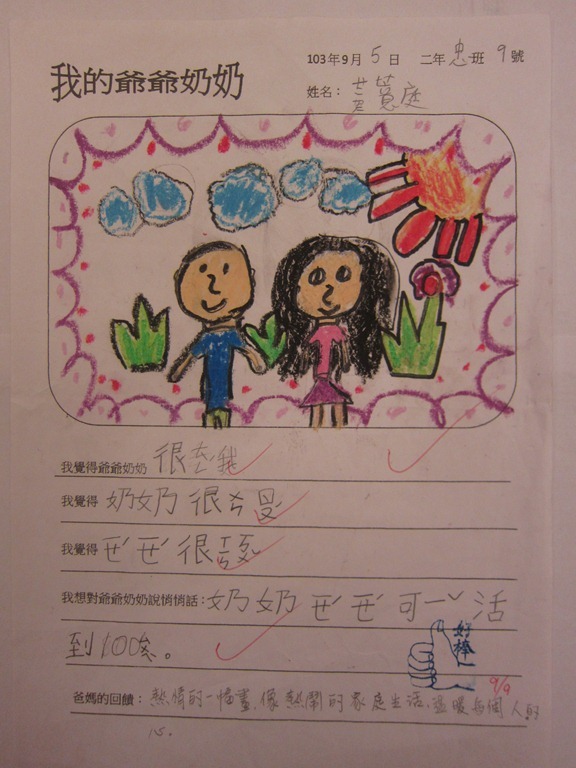 我的爺爺奶奶
103年9月5日 二年忠班9號
姓名：黃慧庭
我覺得爺爺奶奶 很ㄊㄥˊ我
我覺得 奶奶很ㄘ
我覺得 ㄧㄝˊㄧㄝˊ很
我想對爺爺奶奶說悄悄話：奶奶ㄧㄝˊㄧㄝˊ可ㄧˇ活
到100歲。
好棒
9/9
爸媽的回饋：熱情的一幅畫，像熱鬧的家庭生活，溫暖每個人的
心。